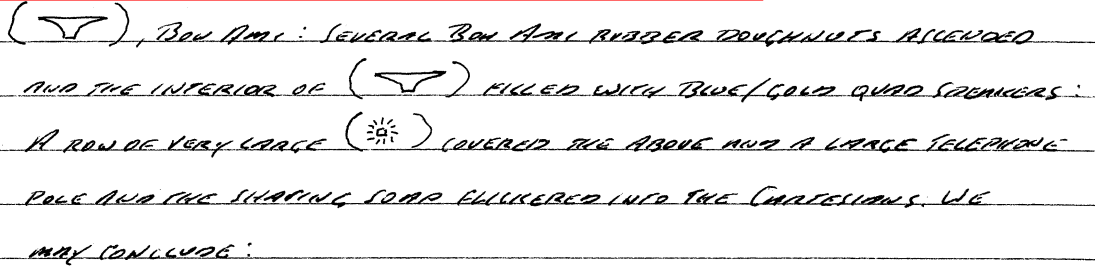 ( ), Bon Ami: Several Bon Ami rubber doughnuts ascended
and the interior of ( ) filled with Blue/Gold quad speakers:
A row of very large ( ) covered the above and a large telephone
pole and the shaving soap flickered into the Cartesians. We
may conclude: